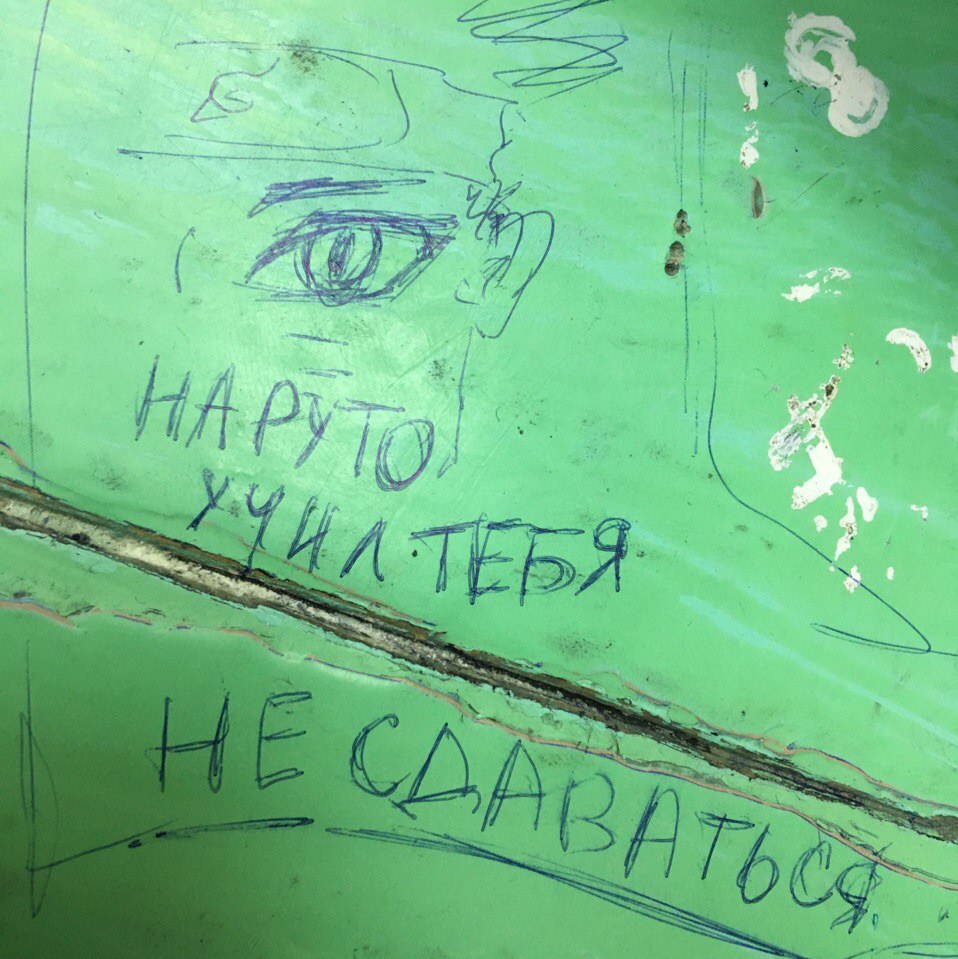 НАРУТО
УЧИЛ ТЕБЯ
НЕ СДАВАТЬСЯ.